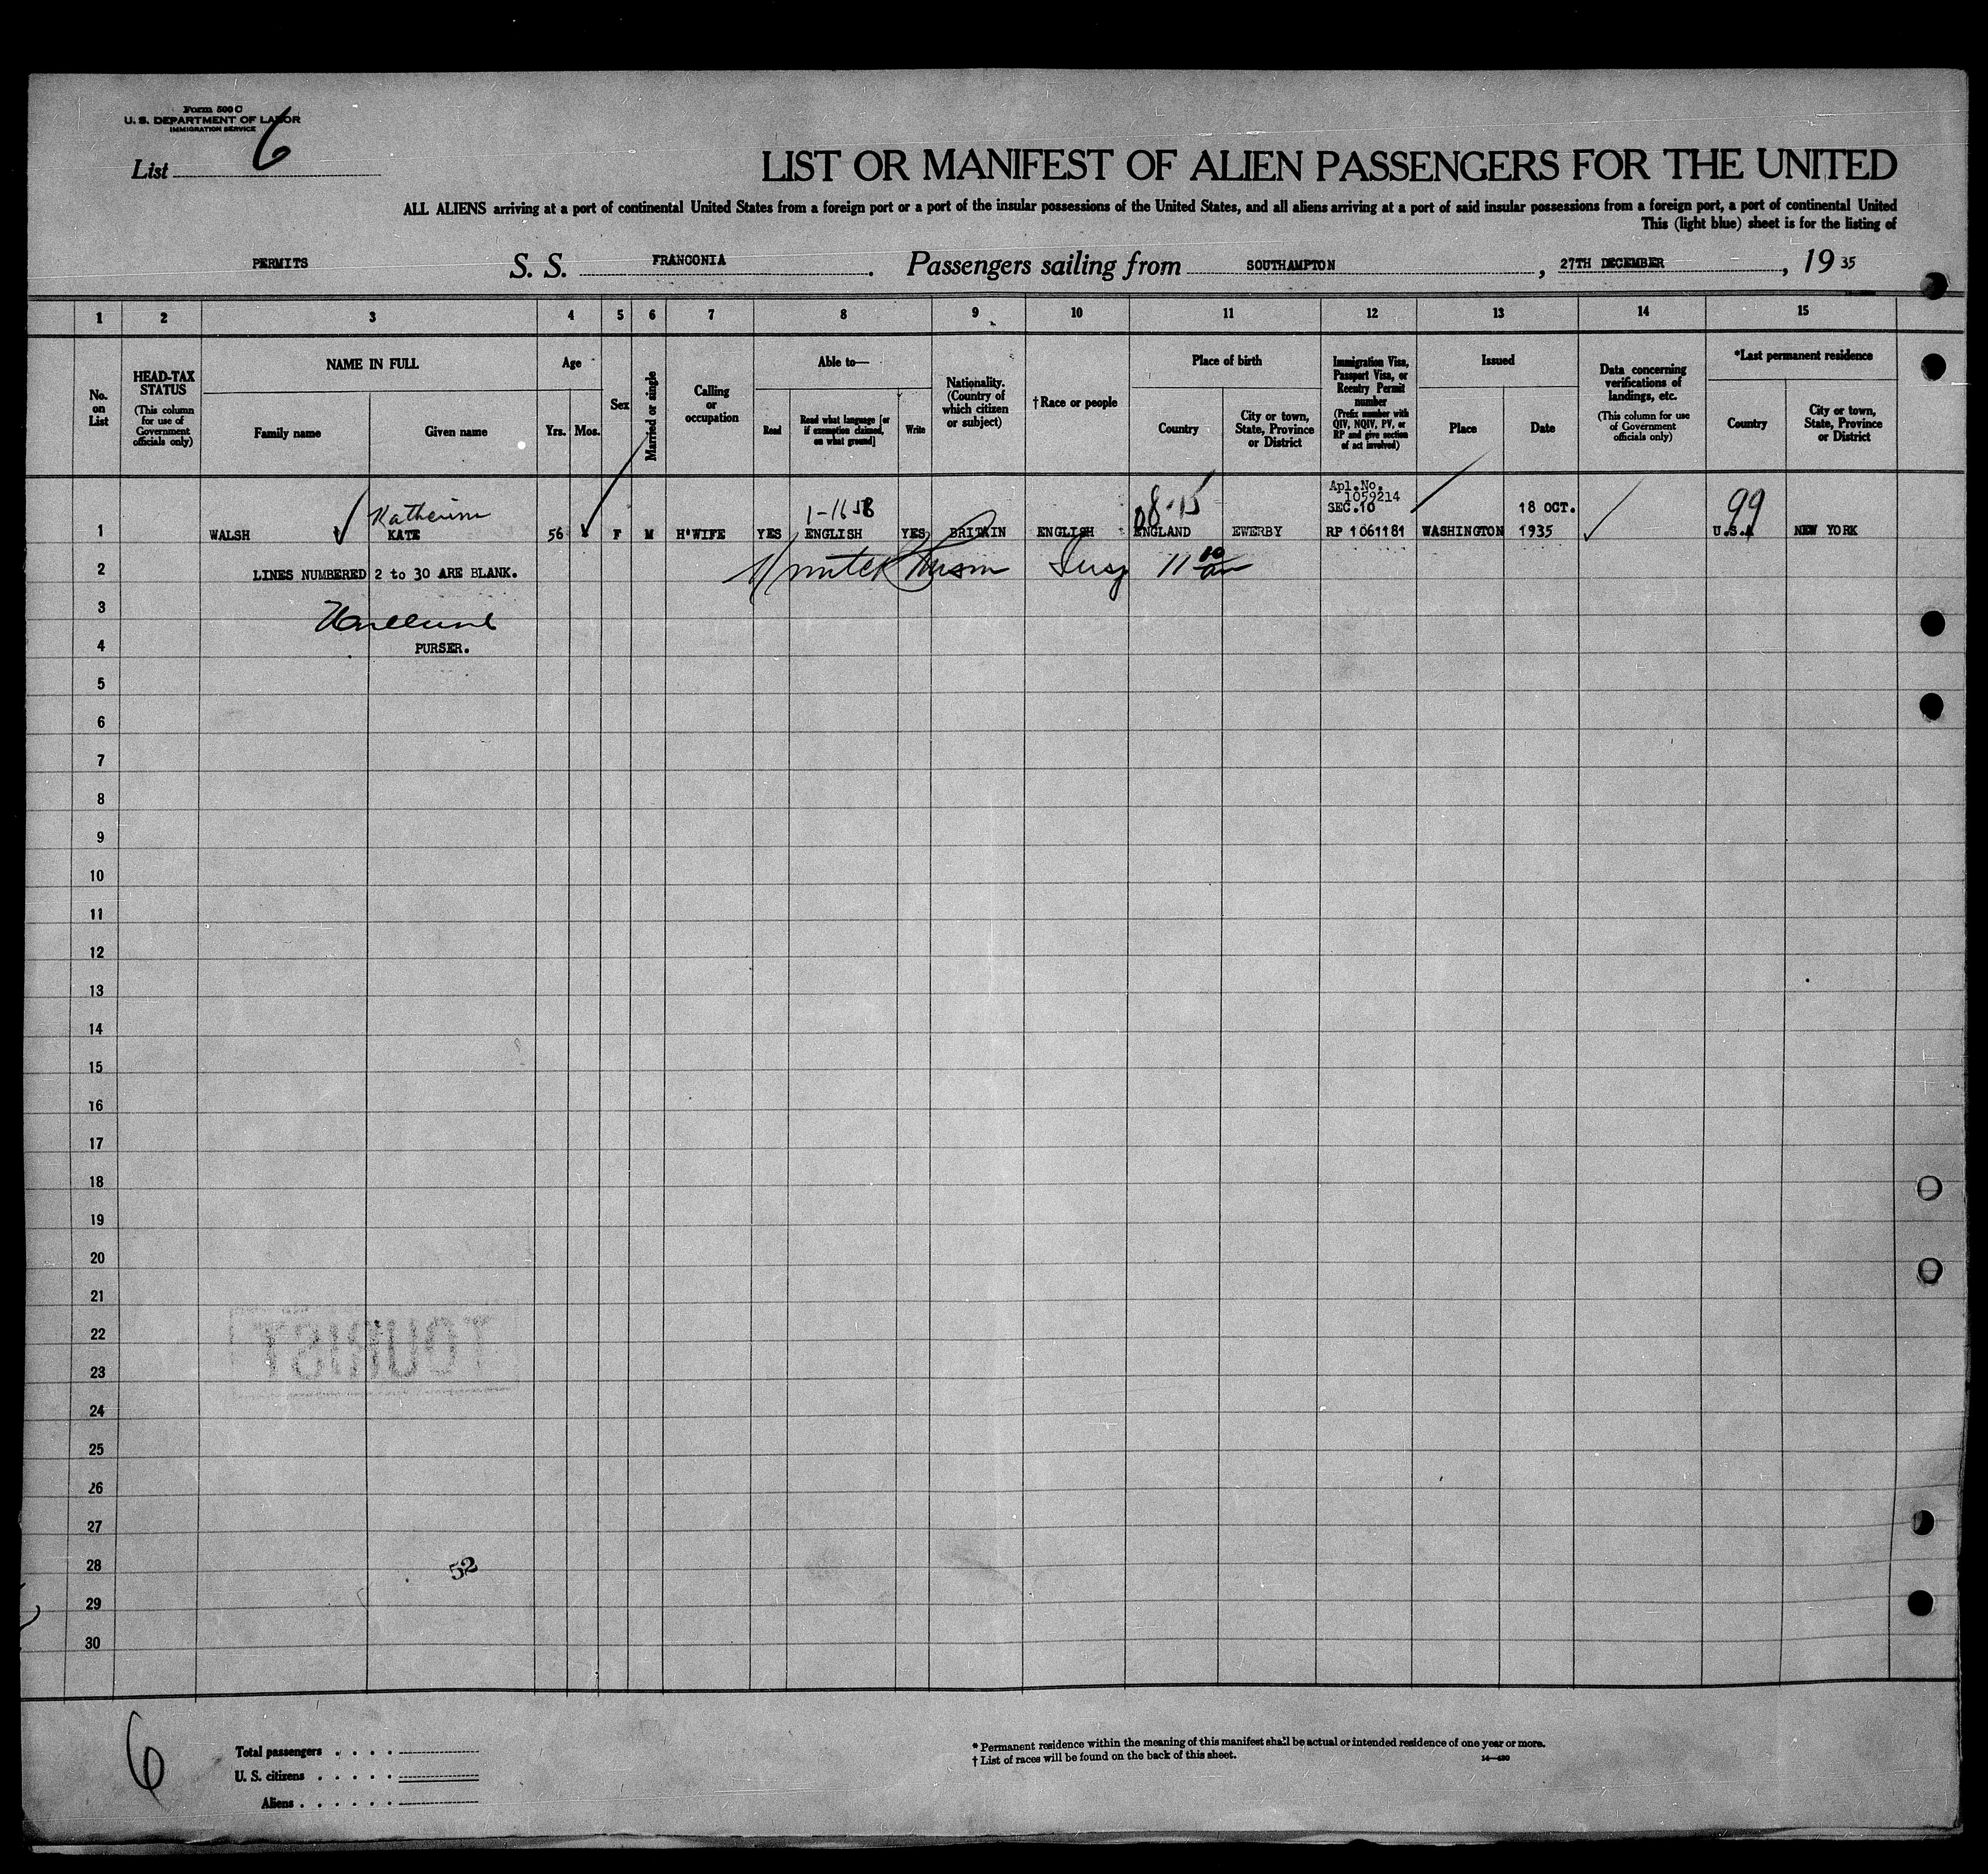 Form 500 C
U. S. DEPARTMENT OF LABOR
IMMIGRATION SERVICE
List 6
LIST OR MANIFEST OF ALIEN PASSENGERS FOR THE UNITED
ALL ALIENS arriving at a port of continental United States from a foreign port or a port of the insular possessions of the United States, and all aliens arriving at a port of said insular possessions from a foreign port, a port of continental United
This (light blue) sheet is for the listing of
PERMITS S. S. FRANCONIA . Passengers sailing from SOUTHAMPTON , 27TH DECEMBER , 19 35
1 2 3 4 5 6 7 8 9 10 11 12 13 14 15
No. on List
HEAD-TAX STATUS
(This column for use of Government officials only)
NAME IN FULL
Family name Given name
Age
Yrs. Mos.
Sex
Married or single
Calling or occupation
Able to—
Read
Read what language [or if exemption claimed, on what ground]
Write
Nationality. (Country of which citizen or subject)
†Race or people
Place of birth
Country
City or town, State, Province or District
Immigration Visa, Passport Visa, or Reentry Permit number
(Prefix number with QIV, NQIV, PV, or RP and give section of act involved)
Issued
Place Date
Data concerning verifications of landings, etc.
(This column for use of Government officials only)
*Last permanent residence
Country
City or town, State, Province or District
Katherine 1-1658 08-15 Apl.No. 1059214 99
SEC.10 18 OCT.
1 WALSH KATE 56 F M H'WIFE YES ENGLISH YES BRITAIN ENGLISH ENGLAND EWERBY RP 1061181 WASHINGTON 1935 U.S.A NEW YORK
2 LINES NUMBERED 2 to 30 ARE BLANK. Insp 11 10 am
3
4 PURSER.
5
6
7
8
9
10
11
12
13
14
15
16
17
18
19
20
21
22 TOURIST
23
24
25
26
27
28 52
29
30
6
Total passengers . . . .
U. S. citizens . . . . .
Aliens . . . . . .
* Permanent residence within the meaning of this manifest shall be actual or intended residence of one year or more.
† List of races will be found on the back of this sheet. 14—430